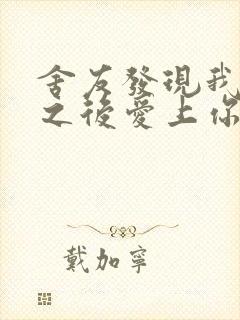 舍友發現我
之後愛上你
戴加寧